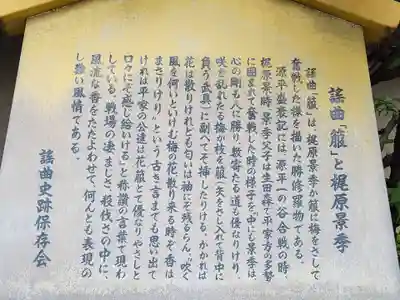 謡曲「箙」と梶原景季
謡曲「箙」は、梶原景季が箙に梅をさして
奮戦した様子を描いた勝修羅物である。
源平盛衰記には、源平一の谷合戦の時、
梶原景時・景季父子は生田森で平家方の多勢
に囲まれて奮戦した時の様子を「中にも景季は
心の剛も人に勝り数寄たる道も優なりけり。
咲き乱れたる梅が枝を箙(矢をさし入れて背中に
負う武具)に副へてぞ挿したりける。かかれば
花は散りけれども匂いは袖にぞ残るらん。"吹く
風を何いといけむ梅の花散り来る時ぞ香は
まさりけり"という古き言までも思い出で
ければ平家の公達は花箙とて優なりやさしと
口々にぞ感じ給ひける」と称讃の言葉で現わ
している。戦場の凄まじさ、殺伐さの中に、
風流な香をただよわせて、何んとも表現の
し難い風情である。
謡曲史跡保存会